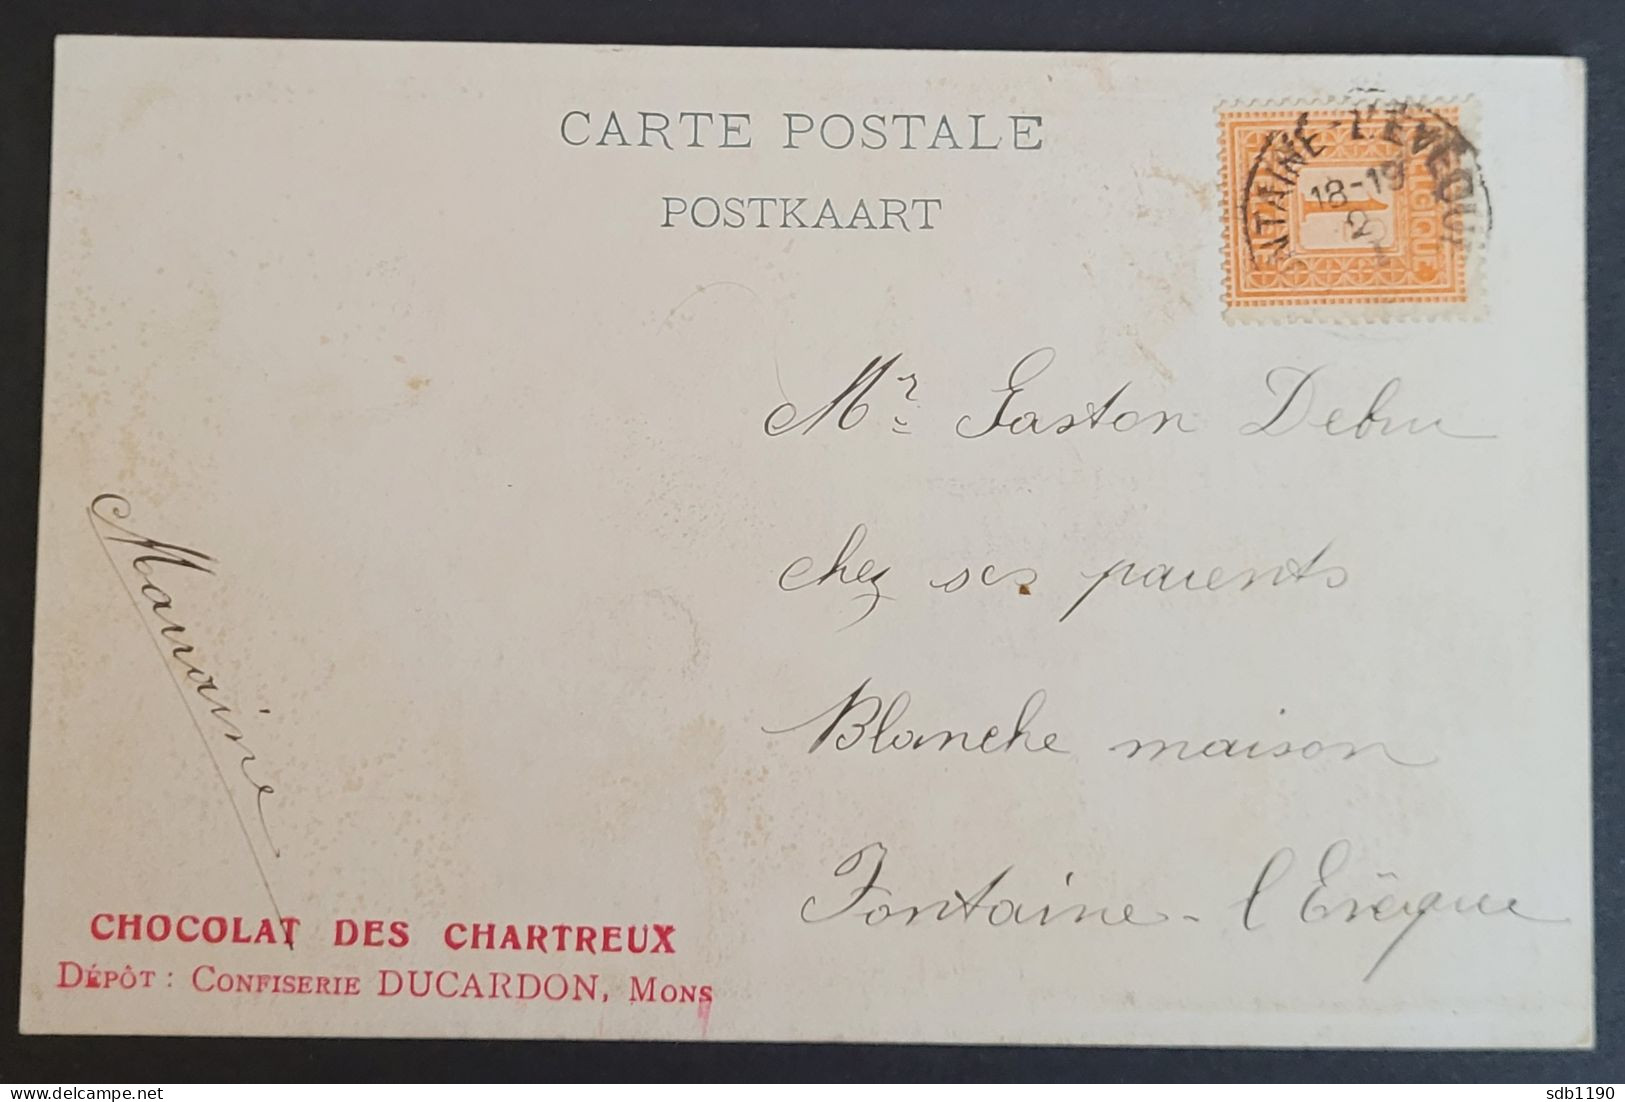 CARTE POSTALE
POSTKAART
BELGIQUE
1
NTAINE-L'EVEQUE
18-19
2
Mr Gaston Debru
chez ses parents
Blanche maison
Fontaine-l'Evêque
CHOCOLAT DES CHARTREUX
DÉPÔT : CONFISERIE DUCARDON, MONS
sdb1190